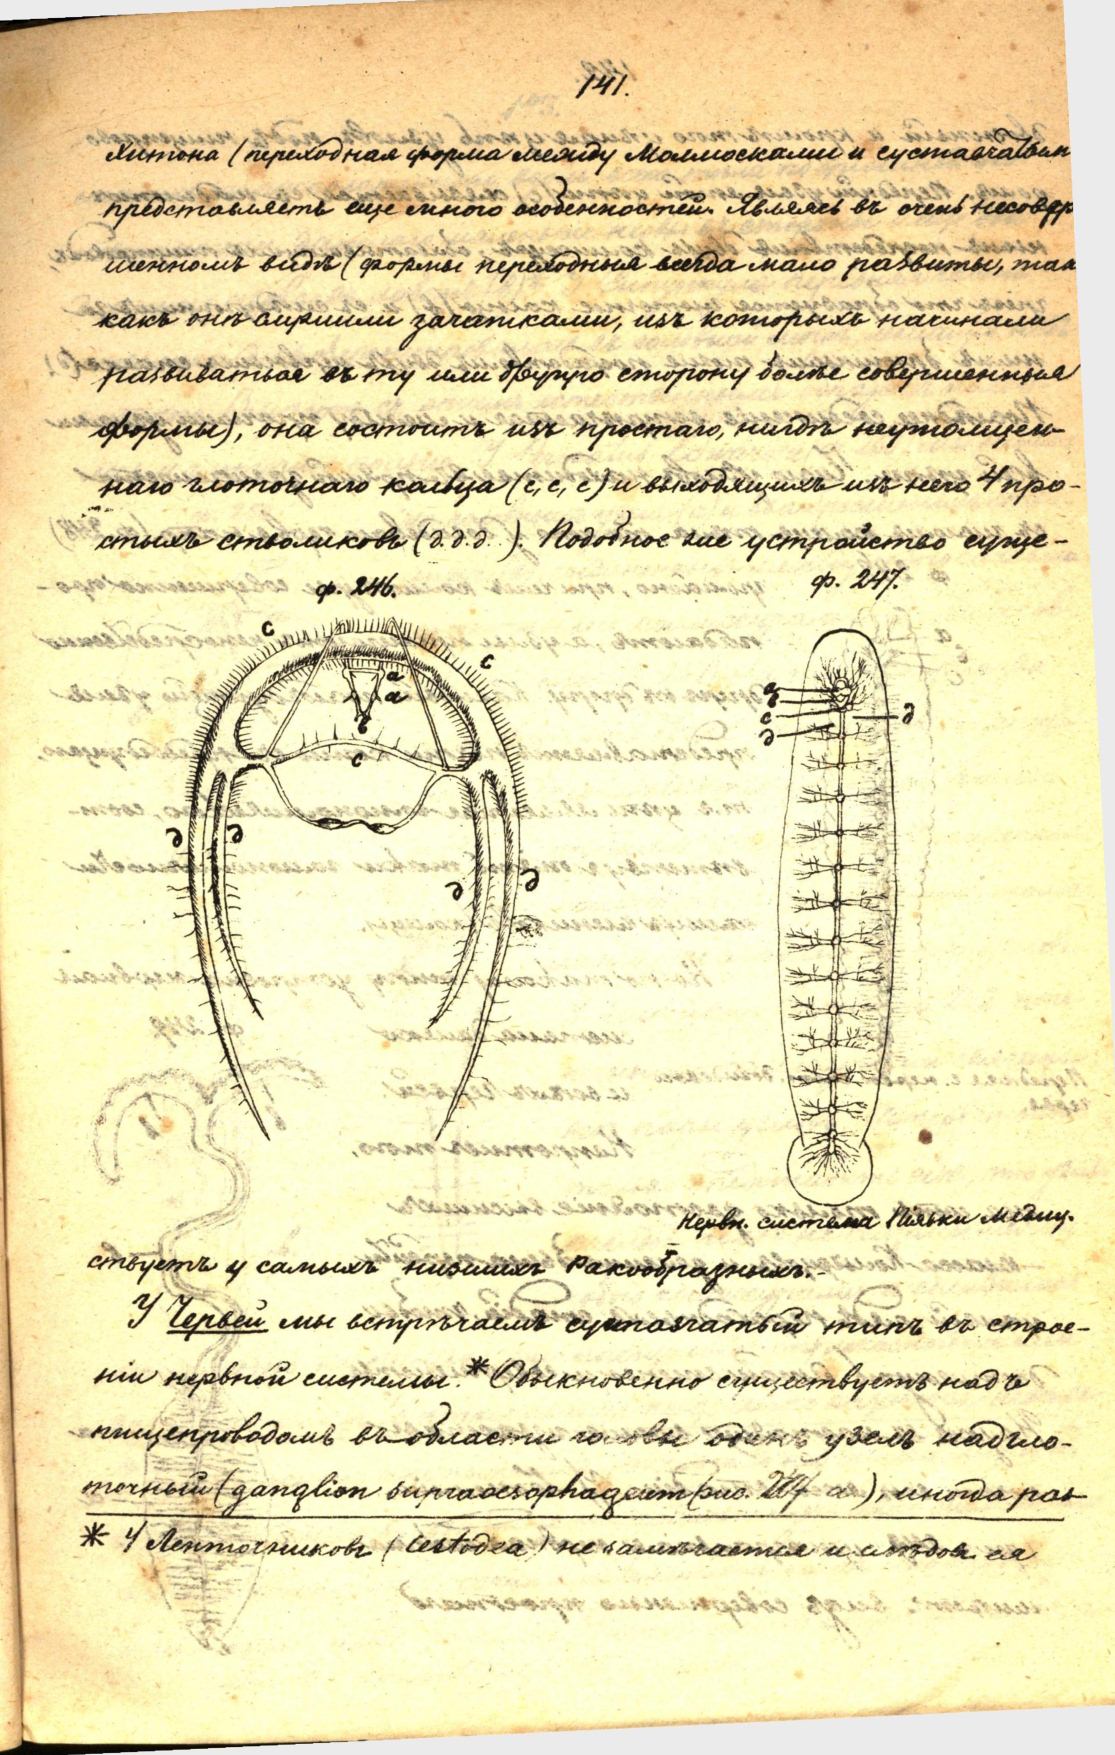 141.
Хитона (переходная форма между Моллюсками и суставчатыми
представляетъ еще много особенностей. Являясь въ очень несовер
шенномъ видѣ (формы переходныя всегда мало развиты, так
какъ онѣ служили зачатками, изъ которыхъ начинали
развиваться въ ту или другую сторону болѣе совершенныя
формы), она состоитъ изъ простаго, нигдѣ неутолщен-
наго глоточнаго кольца (с, с, с) и выходящихъ изъ него 4 про-
стыхъ стволиковъ (д.д.д. ). Подобное же устройство суще-
ф. 246.
ф. 247.
с
с
а
а
в
с
е
е
е
е
с
д
д
Нервн. система Піявки Медиц.
ствуетъ у самыхъ низшихъ Ракообразныхъ.-
У Червей мы встрѣчаемъ суставчатый типъ въ строе-
ніи нервной системы.* Обыкновенно существуетъ надъ
пищепроводомъ въ области головы одинъ узелъ надгло-
точный (ganglion supraoesophageum (рис. 247 а), иногда раз-
* У Ленточниковъ (Cestodea) не замѣчается и слѣдов ея